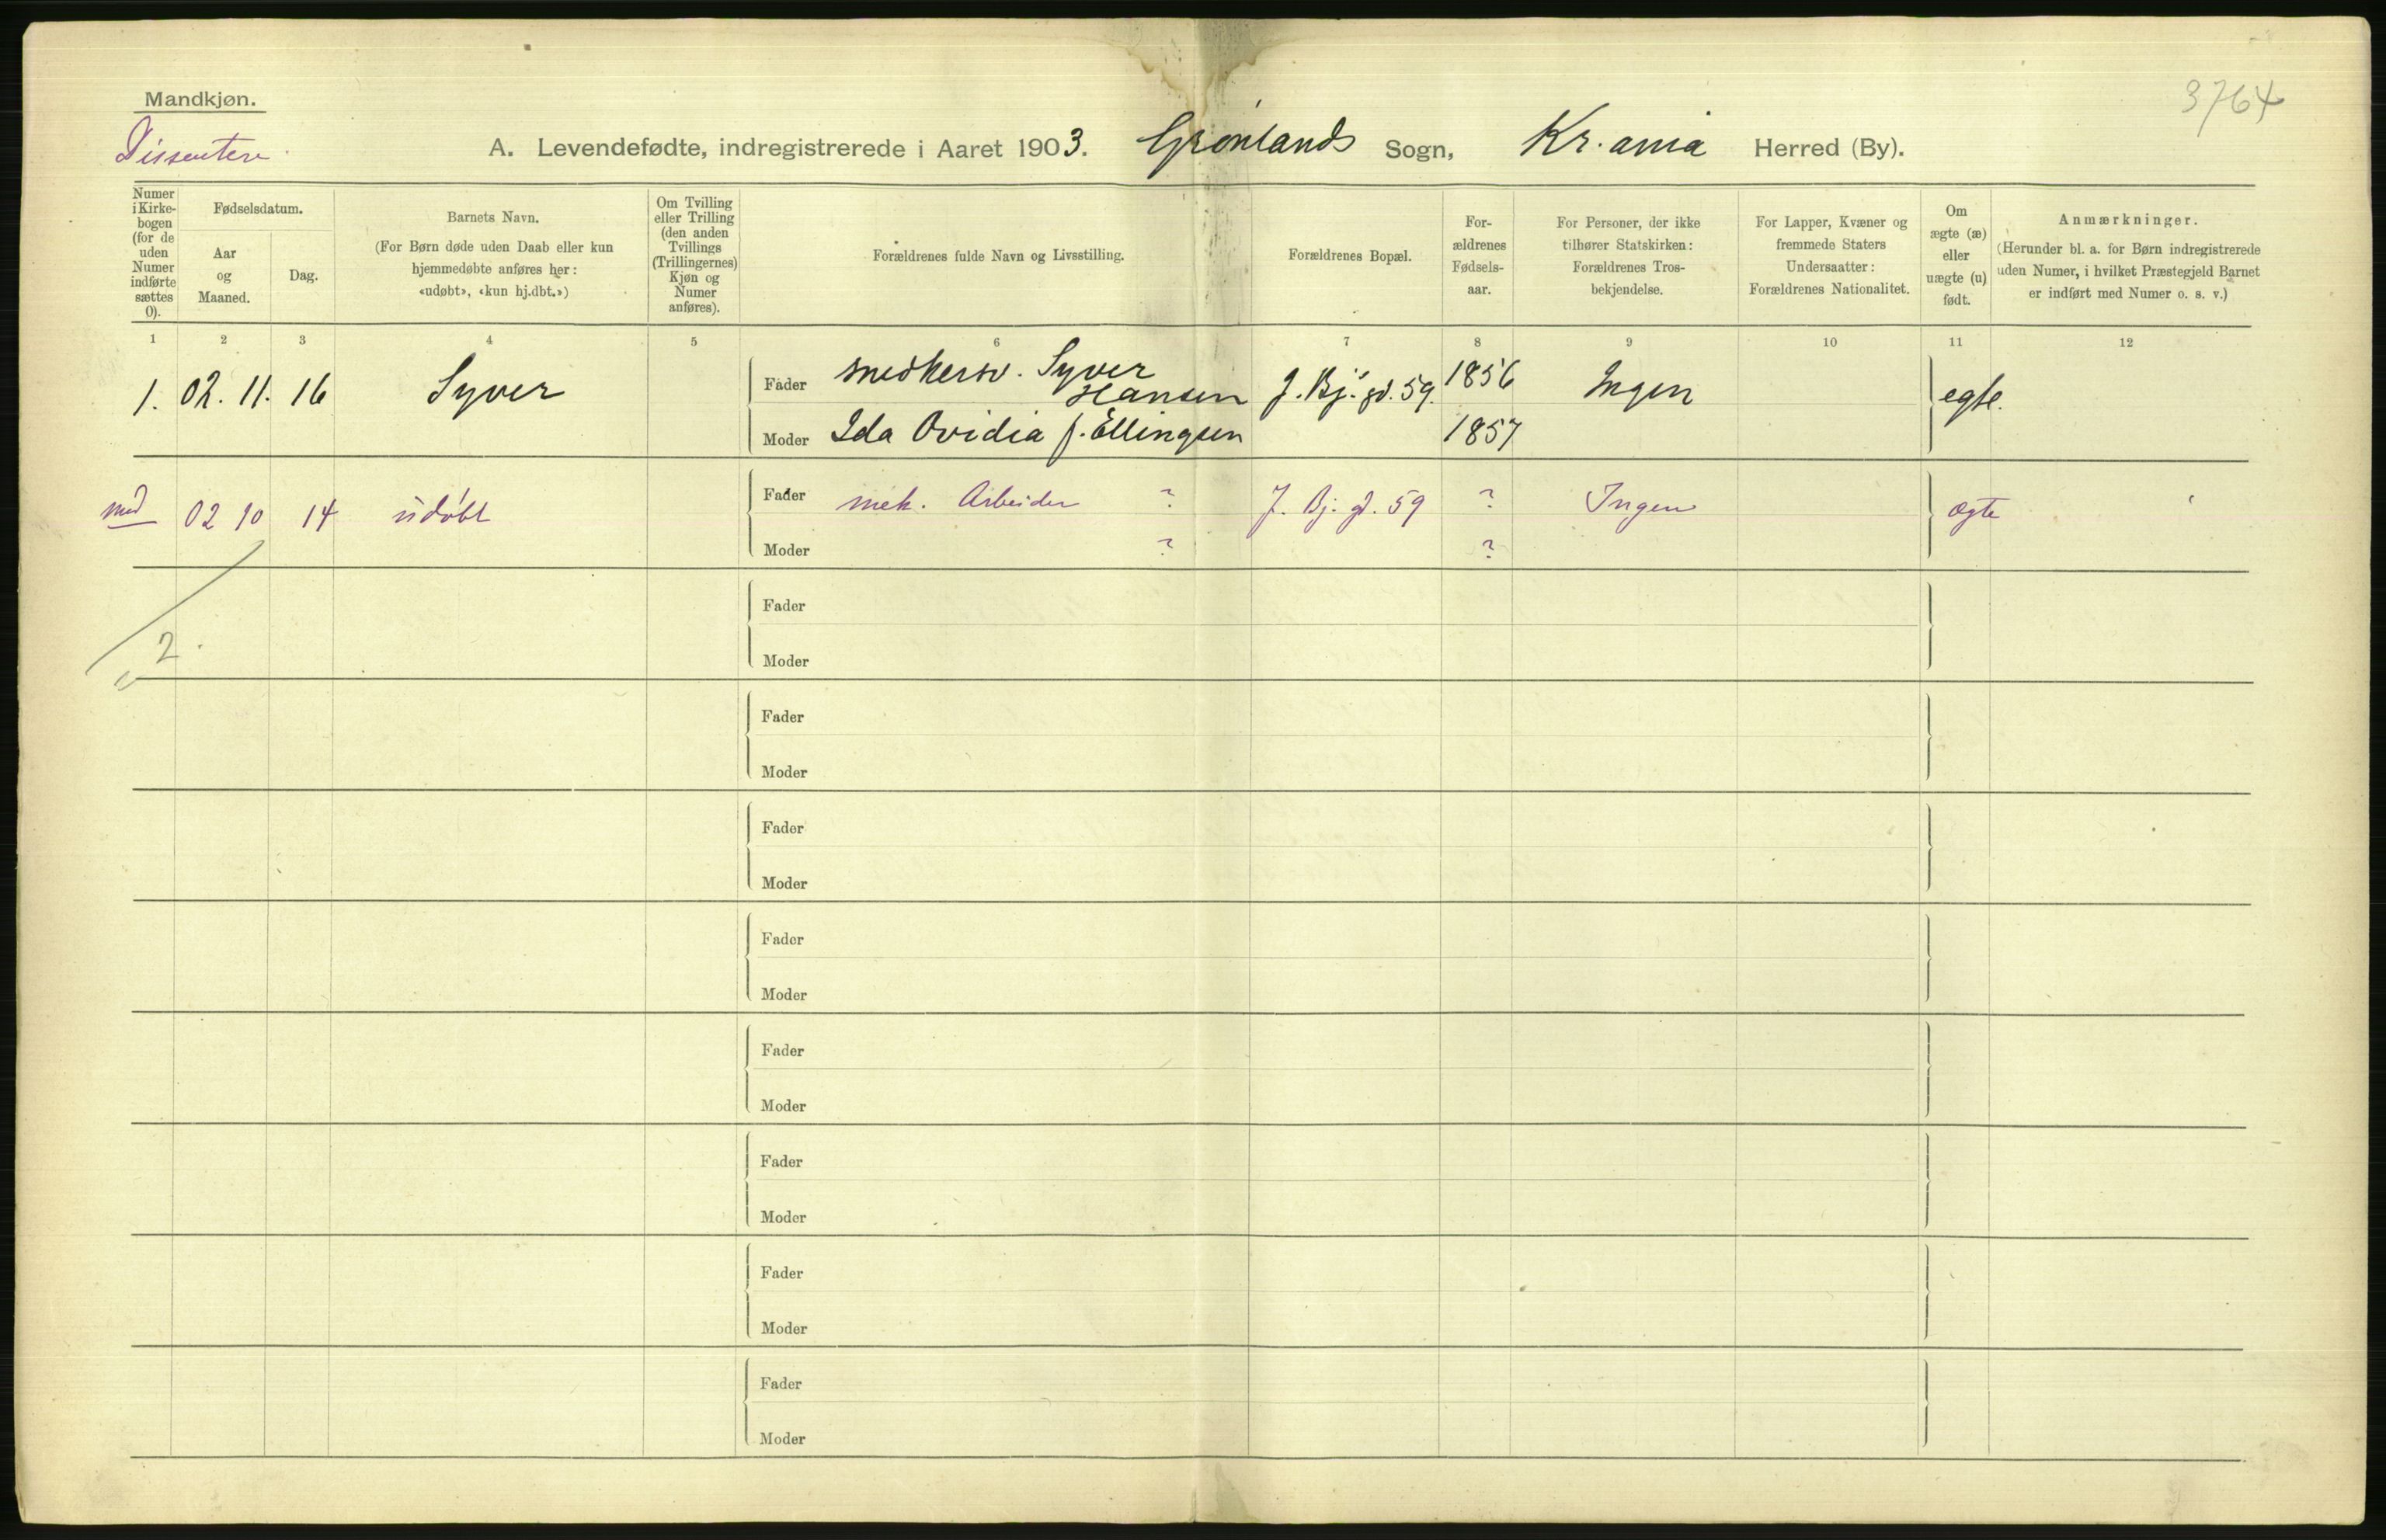 Mandkjøn.
3764
Dissentere
A. Levendefødte, indregistrerede i Aaret 1903. Grønlands Sogn, Kr.ania Herred (By).
Numer i Kirkebogen (for de uden Numer indførte sættes 0).
Fødselsdatum.
Aar og Maaned.
Dag.
Barnets Navn.
(For Børn døde uden Daab eller kun hjemmedøbte anføres her: «udøbt», «kun hj.dbt.»)
Om Tvilling eller Trilling (den anden Tvillings (Trillingernes) Kjøn og Numer anføres).
Forældrenes fulde Navn og Livsstilling.
Forældrenes Bopæl.
Forældrenes Fødselsaar.
For Personer, der ikke tilhører Statskirken: Forældrenes Trosbekjendelse.
For Lapper, Kvæner og fremmede Staters Undersaatter: Forældrenes Nationalitet.
Om ægte (æ) eller uægte (u) født.
Anmærkninger.
(Herunder bl. a. for Børn indregistrerede uden Numer, i hvilket Præstegjeld Barnet er indført med Numer o. s. v.)
1 2 3 4 5 6 7 8 9 10 11 12
1. 02. 11. 16 Syver Fader snedkersv. Syver Hansen J. Bj. gd. 59. 1856 Ingen egte.
Moder Ida Ovidia f. Ellingsen 1857
med 02 10 14 udøbt Fader mek. Arbeider ? J. Bj. gd. 59 ? Ingen ægte
Moder ? ?
2.
Fader
Moder
Fader
Moder
Fader
Moder
Fader
Moder
Fader
Moder
Fader
Moder
Fader
Moder
Fader
Moder